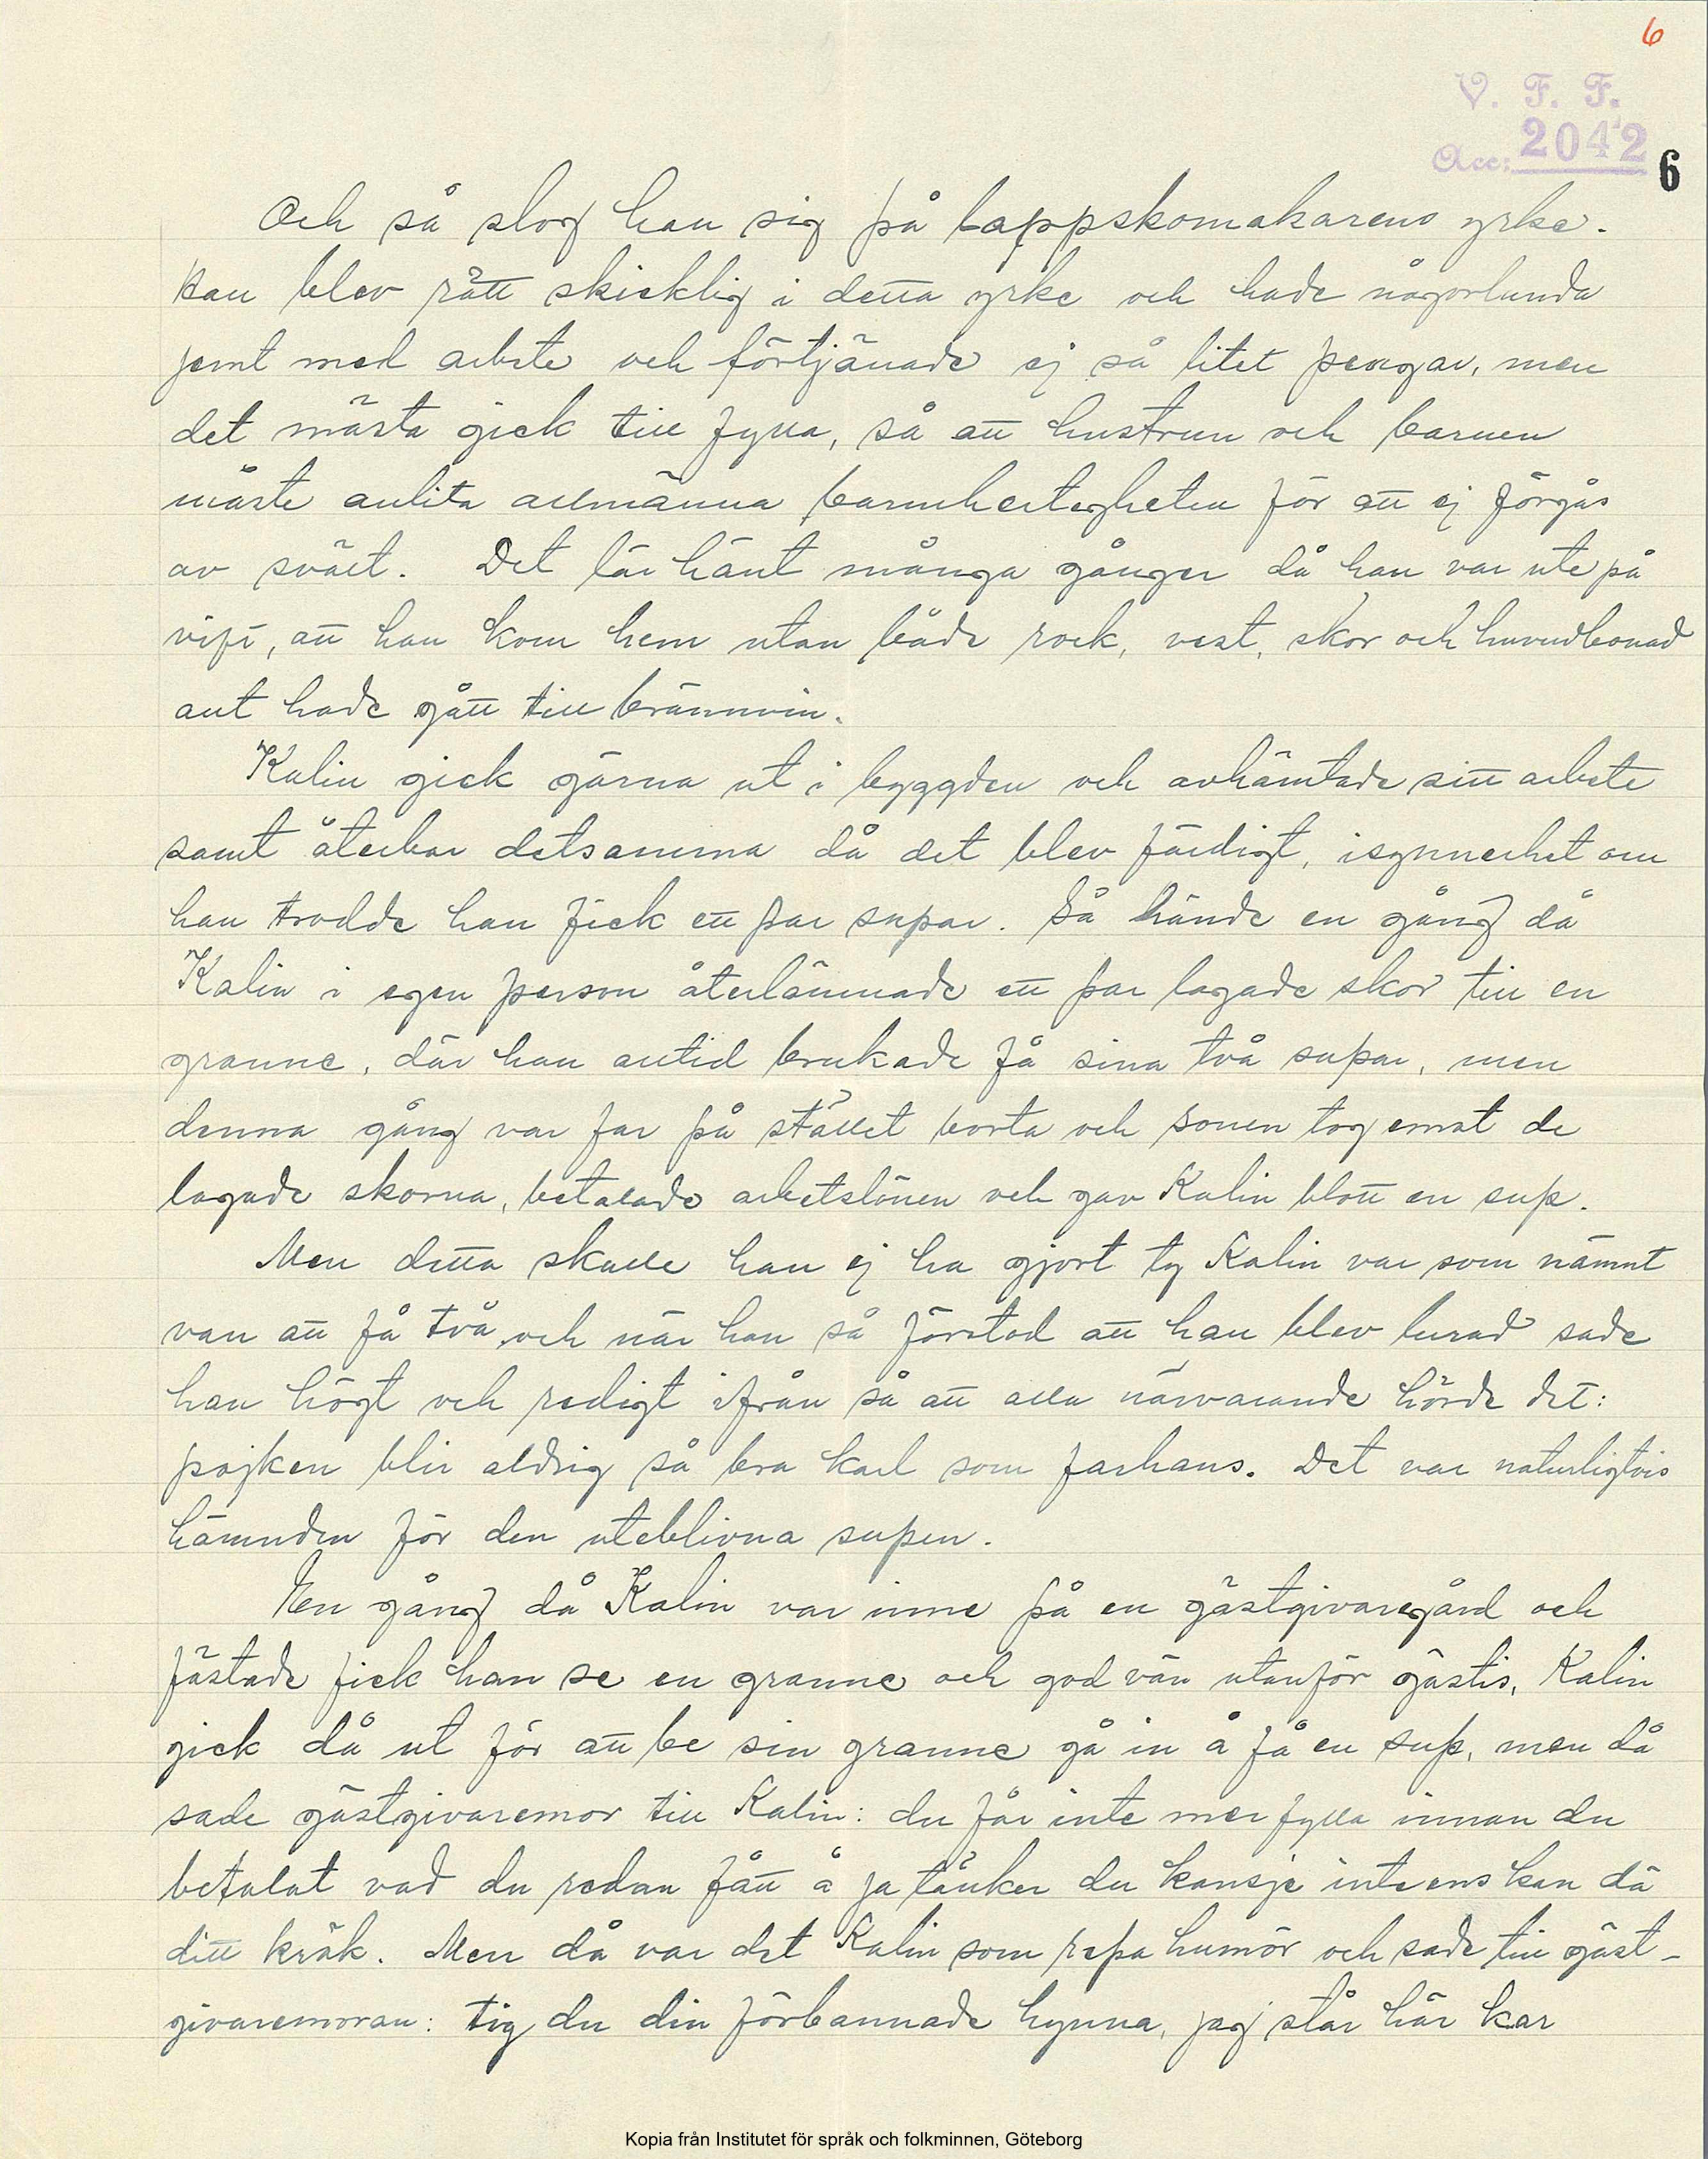 6
V. F. F.
Acc: 2042
6
Och så slog han sig på lappskomakarens yrke.
Han blev rätt skicklig i detta yrke och hade någorlunda
jemt med arbete och förtjänade ej så litet pengar, men
det mästa gick till fylla, så att hustrun och barnen
måste anlita allmänna barmhertigheten för att ej förgås
av svält. Det lär hänt många gånger då han var ute på
vift, att han kom hem utan både rock, vest, skor och huvudbonad
allt hade gått till brännvin.
Kalin gick gärna ut i byggden och avhämtade sitt arbete
samt återbar detsamma då det blev färdigt, isynnerhet om
han trodde han fick ett par supar. Så hände en gång då
Kalin i egen person återlämnade ett par lagade skor till en
granne, där han alltid brukade få sina två supar, men
denna gång var far på stället borta och sonen tog emot de
lagade skorna, betalade arbetslönen och gav Kalin blott en sup.
Men detta skulle han ej ha gjort ty Kalin var som nämnt
van att få två och när han så förstod att han blev lurad sade
han högt och redigt ifrån så att alla närvarande hörde det:
pojken blir aldrig så bra karl som farhans. Det var naturligtvis
hämnden för den uteblivna supen.
En gång då Kalin var inne på en gästgivaregård och
fästade fick han se en granne och god vän utanför gästis, Kalin
gick då ut för att be sin granne gå in å få en sup, men då
sade gästgivaremor till Kalin: du får inte mer fylla innan du
betalat vad du redan fått å ja tänker du kansje inte ens kan dä
ditt kräk. Men då var det Kalin som repa humör och sade till gäst-
givaremoran: tig du din förbannade hynna, jag står här kar
Kopia från Institutet för språk och folkminnen, Göteborg